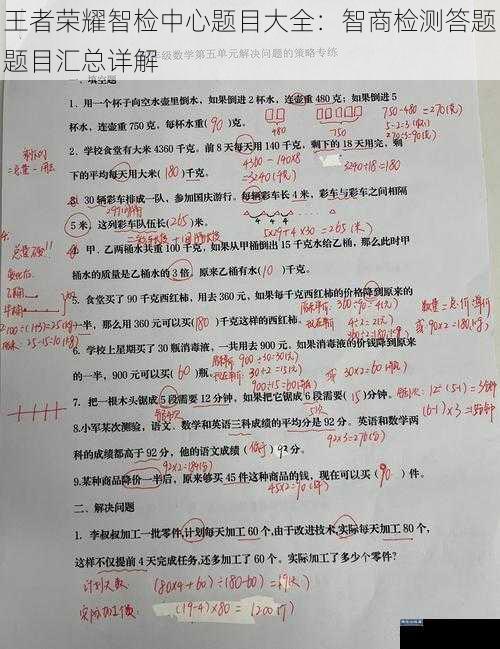 王者荣耀智检中心题目大全：智商检测答题
题目汇总详解
年级数学第五单元解决问题的策略专练
一、填空题
1、用一个杯子向空水壶里倒水，如果倒进 2 杯水，连壶重 480 克；如果倒进 5
杯水，连壶重 750 克，每杯水重( 90 )克。
480 750
750-480=270(克)
5-2=3(杯)
270÷3=90(克)
2、学校食堂有大米 4360 千克。前 8 天每天用 140 千克，剩下的 18 天用完，剩
下的平均每天用大米( 180 )千克。
4360-140×8
=3240(千克)
3240÷18=180
3、30 辆彩车排成一队，参加国庆游行。每辆彩车长 4 米，彩车与彩车之间相隔
5 米，这列彩车队伍长( 265 )米。
4 4 4 4
5×29+4×30=265(米)
4、甲、乙两桶水共重 100 千克，如果从甲桶倒出 15 千克水给乙桶，那么此时甲
桶水的质量是乙桶水的 3 倍，原来乙桶有水( 10 )千克。
总量不变!!
乙桶
甲桶
100÷(1+3)=25(千克)
25-15=10(千克)
5、食堂买了 90 千克西红柿，用去 360 元，如果每千克西红柿的价格降到原来的
一半，那么用 360 元可以买( 180 )千克这样的西红柿。
360÷90=4(元)
4÷2=2(元)
360÷2=180(千克)
数量=总价÷单价
或 90×2=180(千克)
6、学校上星期买了 30 瓶消毒液，一共用去 900 元。如果消毒液的价钱降到原来
的一半，900 元可以买( 60 )瓶。
900÷30=30(元)
30÷2=15(元)
900÷15=60(瓶)
或 30×2=60(瓶)
7、把一根木头锯成 5 段需要 12 分钟，如果把它锯成 6 段需要( 15 )分钟。
12÷(5-1)=3分钟
(6-1)×3=15分钟
8.小军某次测验，语文、数学和英语三科成绩的平均分是 92 分。英语和数学两
科的成绩都高于 92 分，他的语文成绩( 低于 )92 分。
92×3=276(分)
92×2=184(分)
9.某种商品降价一半后，原来够买 45 件这种商品的钱，现在可以买( 90 )件。
45×2=90(件)
二、解决问题
1、李叔叔加工一批零件，计划每天加工 60 个，由于改进技术，实际每天加工 80 个，
这样不仅提前 4 天完成任务，还多加工了 60 个。实际加工了多少个零件?
计划天数 (80×4+60)÷(80-60)=19(天)
实际加工个数 (19-4)×80=1200(个)